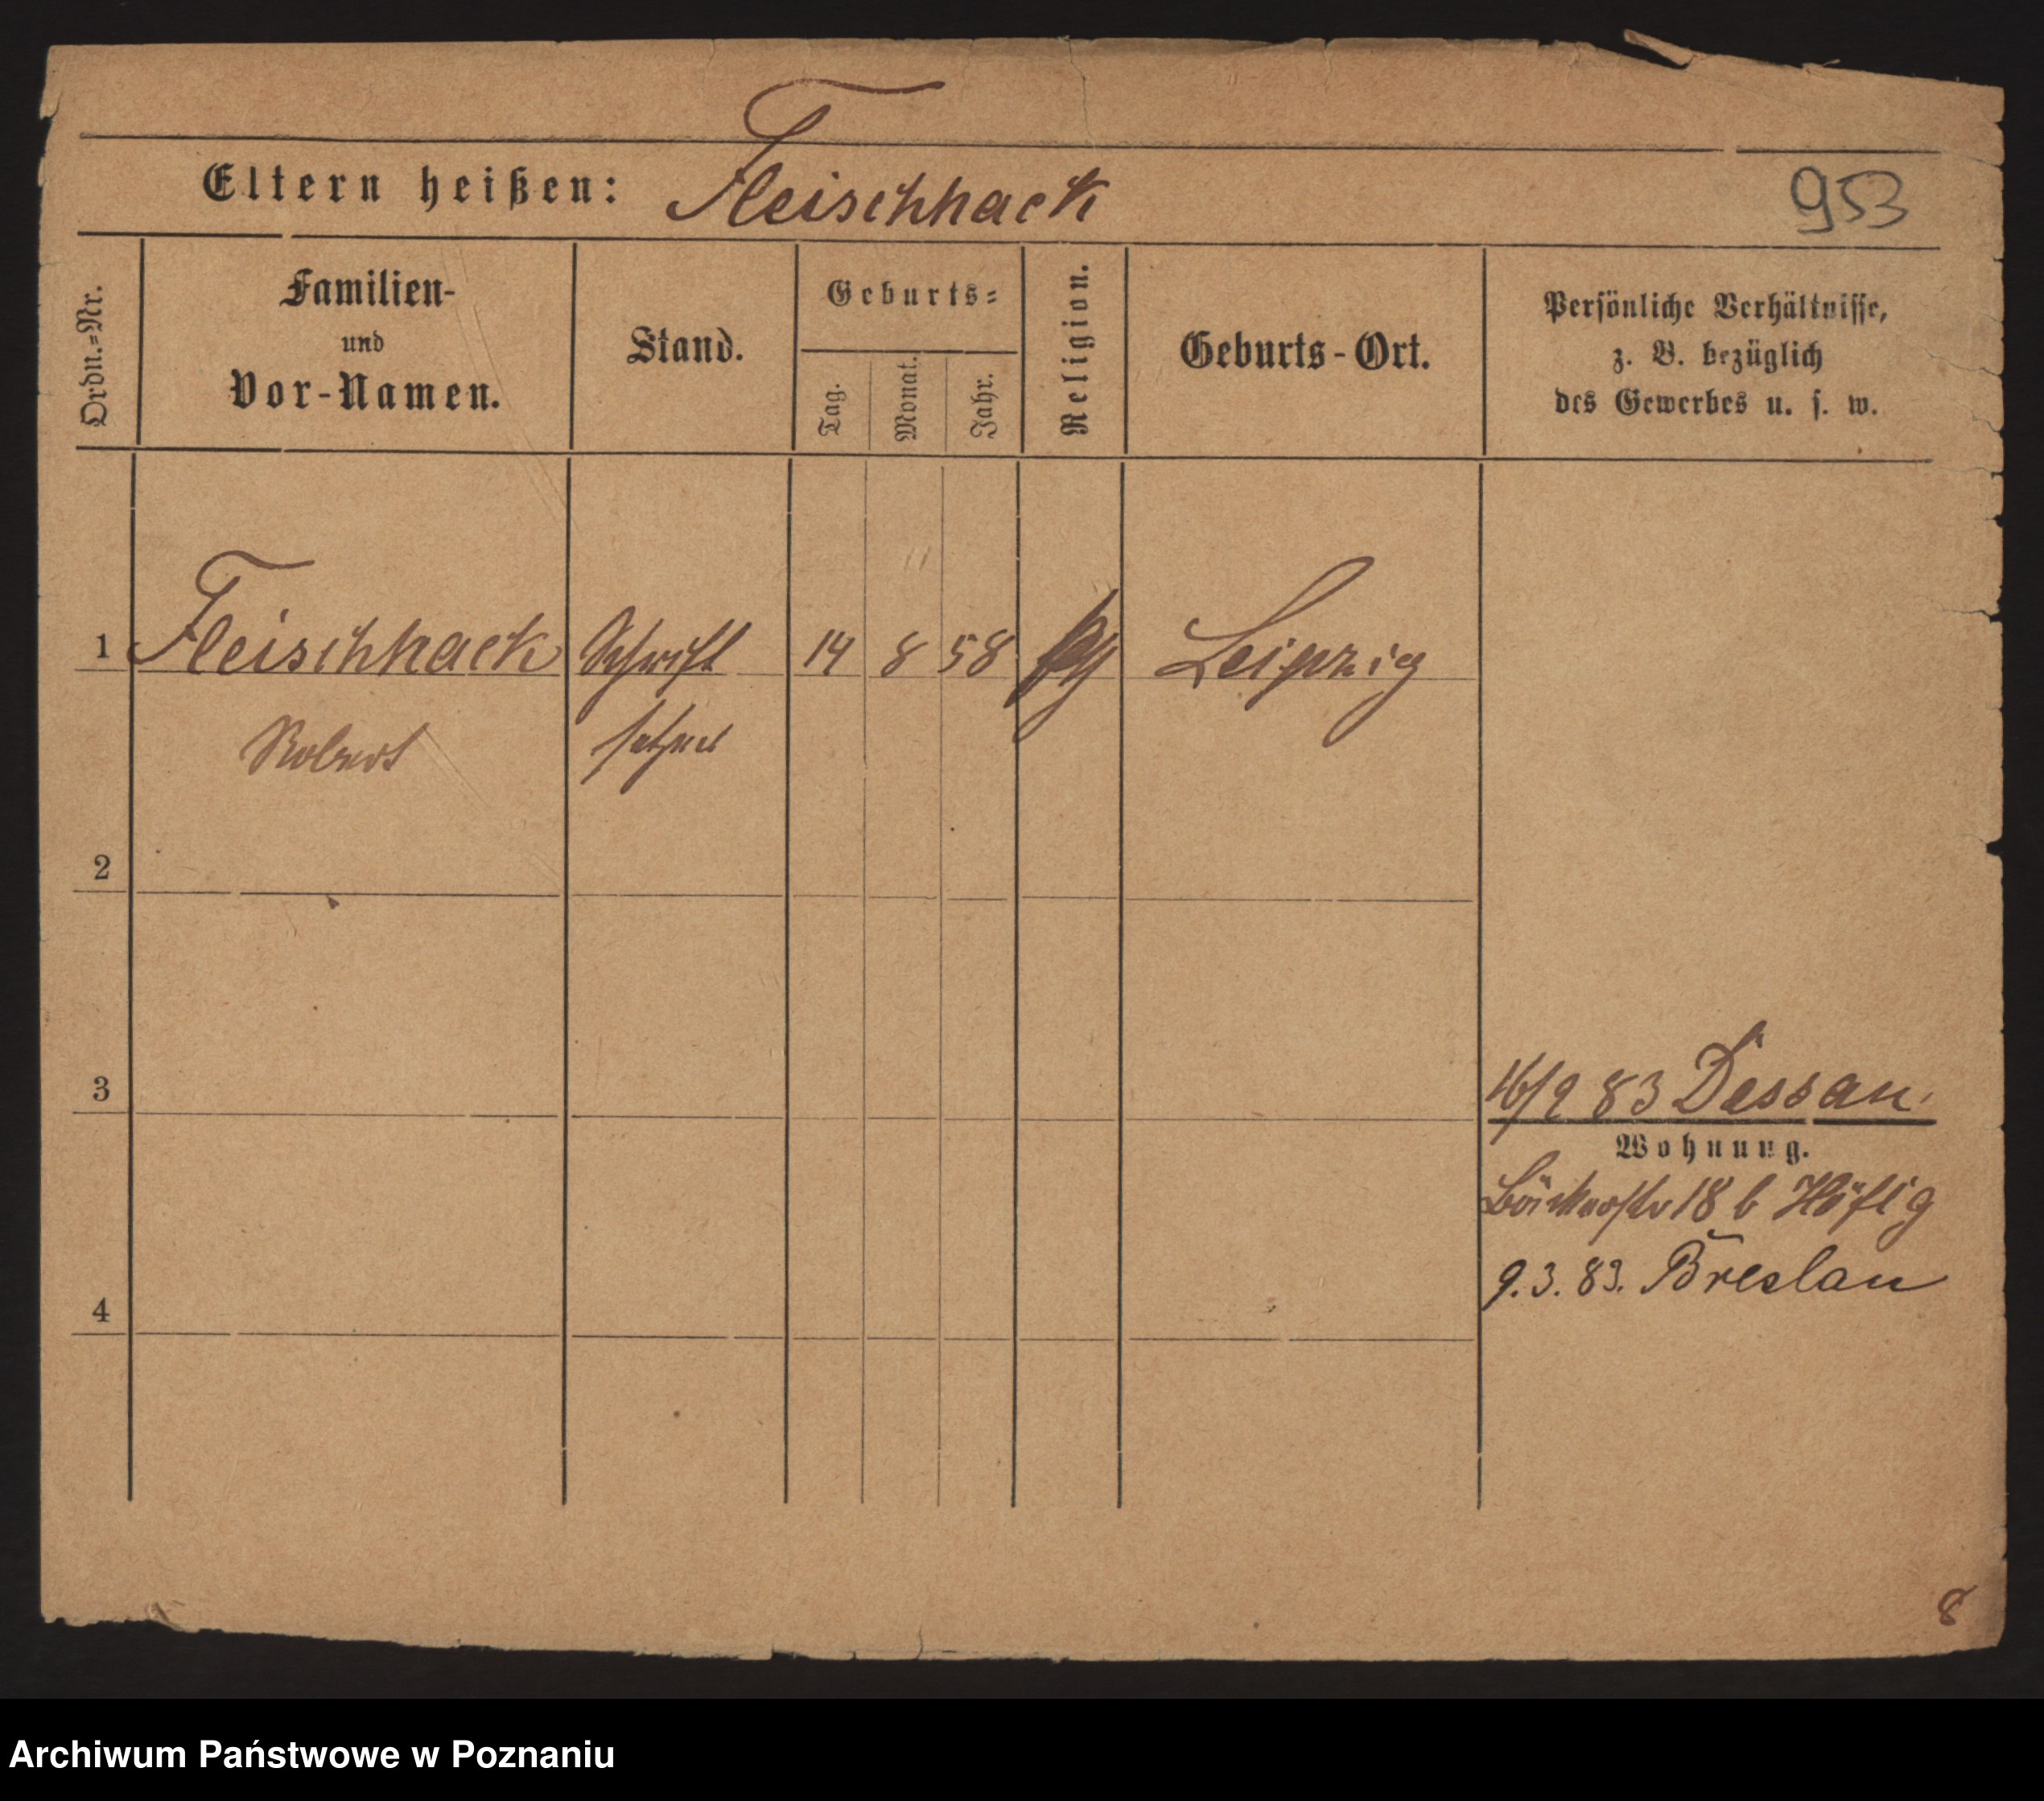 Eltern heißen: Fleischhack
953
Ordn.=Nr.
Familien-
und
Vor-Namen.
Stand.
Geburts=
Tag.
Monat.
Jahr.
Religion.
Geburts-Ort.
Persönliche Verhältnisse,
z. B. bezüglich
des Gewerbes u. s. w.
1 Fleischhack Schrift 14 8 58 Leipzig
Robert setzer
2
3
83 Dessau
Wohnung.
18 b Höfig
9.3.83. Breslau
4
8
Archiwum Państwowe w Poznaniu